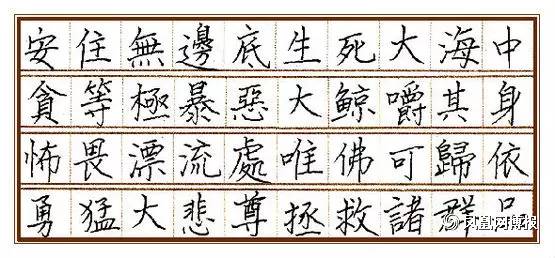 安住無邊底生死大海中
貪等極暴惡大鲸嚼其身
怖畏漂流處唯佛可歸依
勇猛大悲尊拯救諸群
凤凰网博报